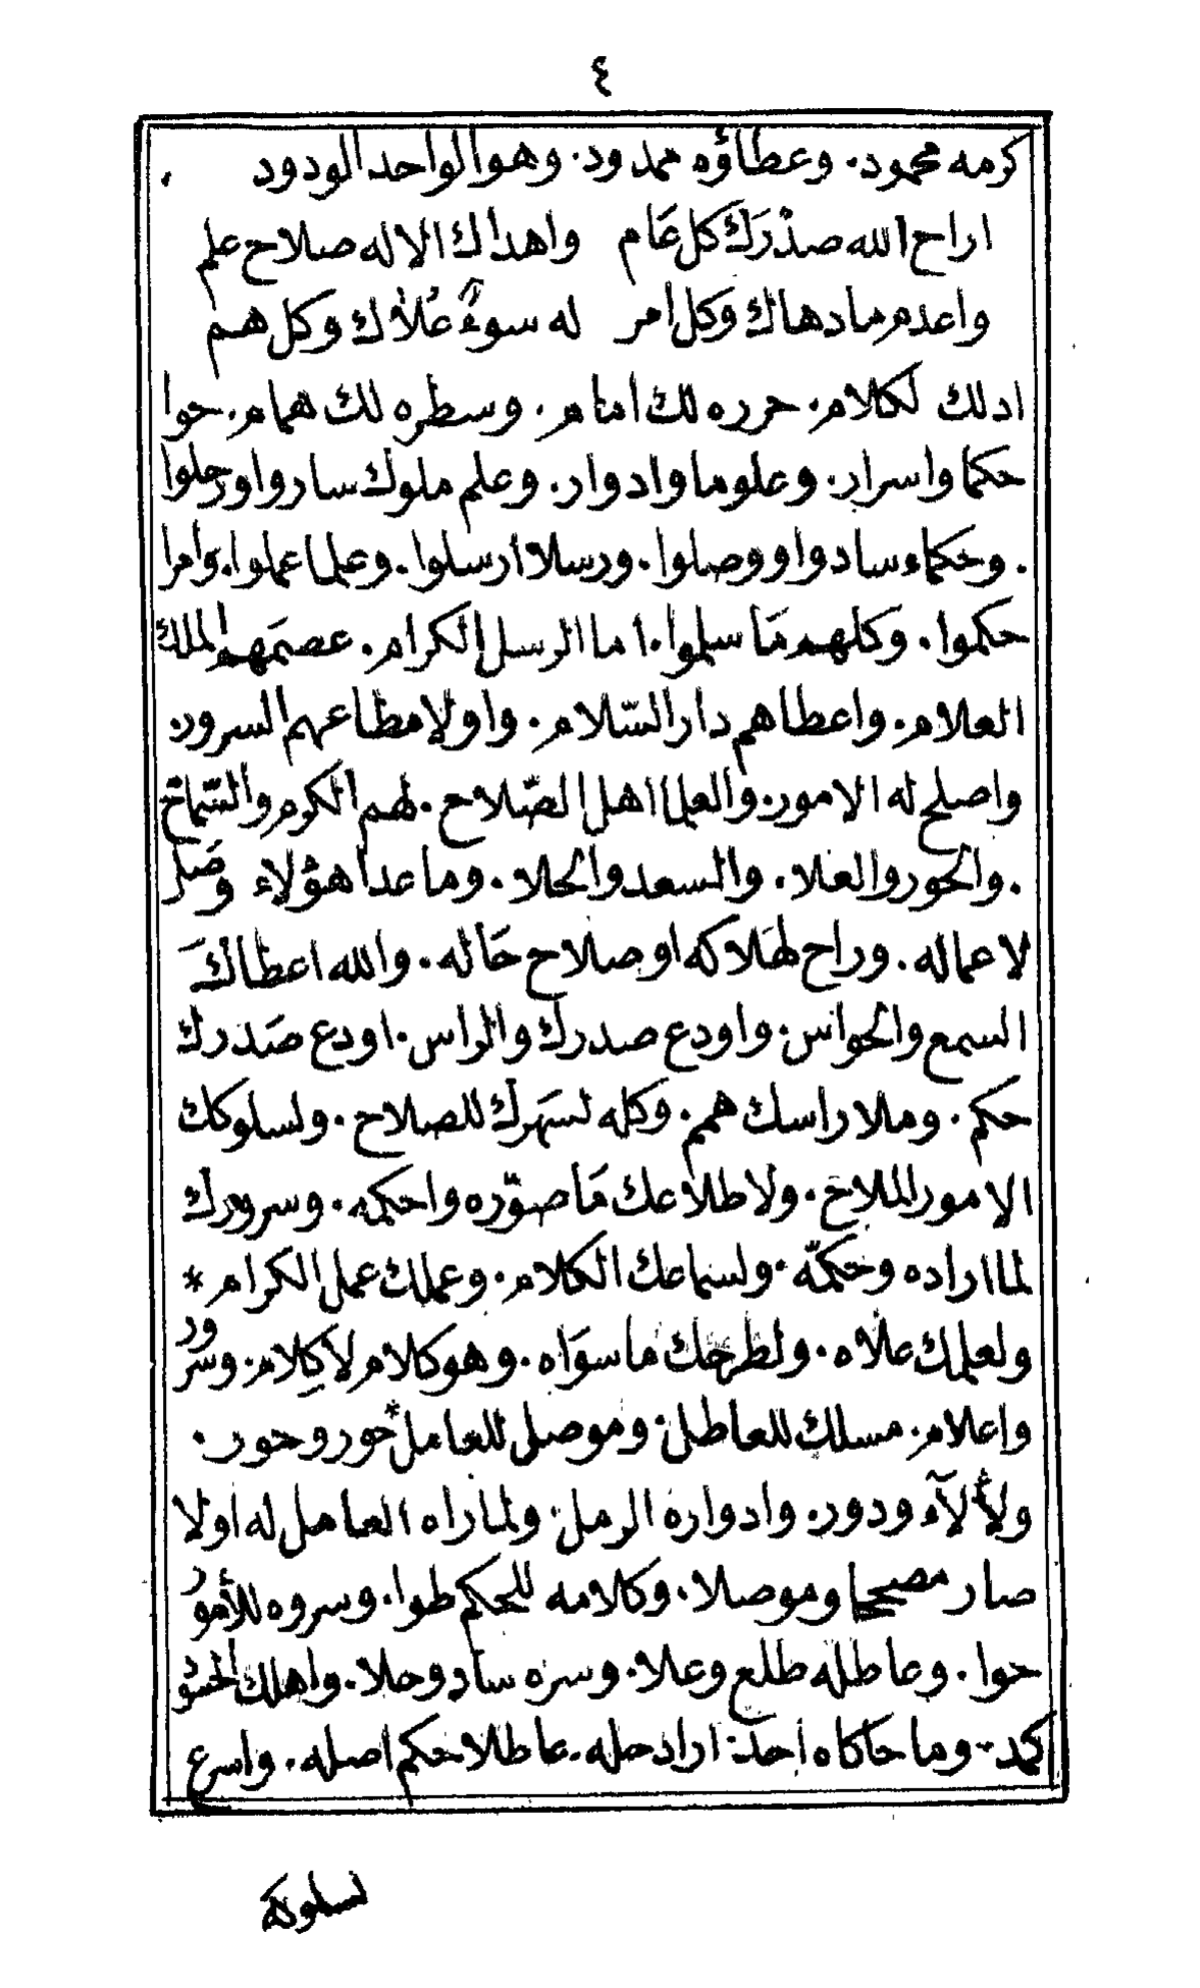 ٤
كرمه محمود. وعطاؤه ممدود. وهو الواحد الودود
اراح الله صدرك كل عام واهداك الاله صلاح علم
واعدم ما دهاك وكل امر له سوء علاك وكل هم
ادلك لكلام. حرره لك امام. وسطره لك همام. حوا
حكما واسرار. وعلوما وادوار. وعلم ملوك ساروا ورحلوا
. وحكماء سادوا ووصلوا. ورسلا ارسلوا. وعلما عملوا. وامرا
حكموا. وكلهم ما سلموا. اما الرسل الكرام. عصمهم الملك
العلام. واعطاهم دار السلام. واولا مطاعهم السرور
واصلح له الامور. والعلما اهل الصلاح. لهم الكرم والسماح
. والحور والعلا. والسعد والحلا. وما عدا هؤلاء وصل
لاعماله. وراح لهلاكه او صلاح حاله. والله اعطاك
السمع والحواس. واودع صدرك والراس. اودع صدرك
حكم. وملا راسك همم. وكله لسهرك للصلاح. ولسلوكك
الامور الملاح. ولاطلاعك ما صوّره واحكمه. وسرورك
لما اراده وحكمه. ولسماعك الكلام. وعملك عمل الكرام *
ولعلمك علاه. ولطرحك ما سواه. وهو كلام لا كلام. وسرور
واعلام. مسلك للعاطل. وموصل للعامل * حور وحور.
ولألآء ودور. وادواره الرمل. ولما راه العامل له اولا
صار مصححا وموصلا. وكلامه للحكم طوا. وسروه للأمور
حوا. وعاطله طلع وعلا. وسره ساد وحلا. واهلك الحسود
كمد. وما حاكاه احد. اراد حله. عاطلا حكم اصله. واسرع
لسلوكه